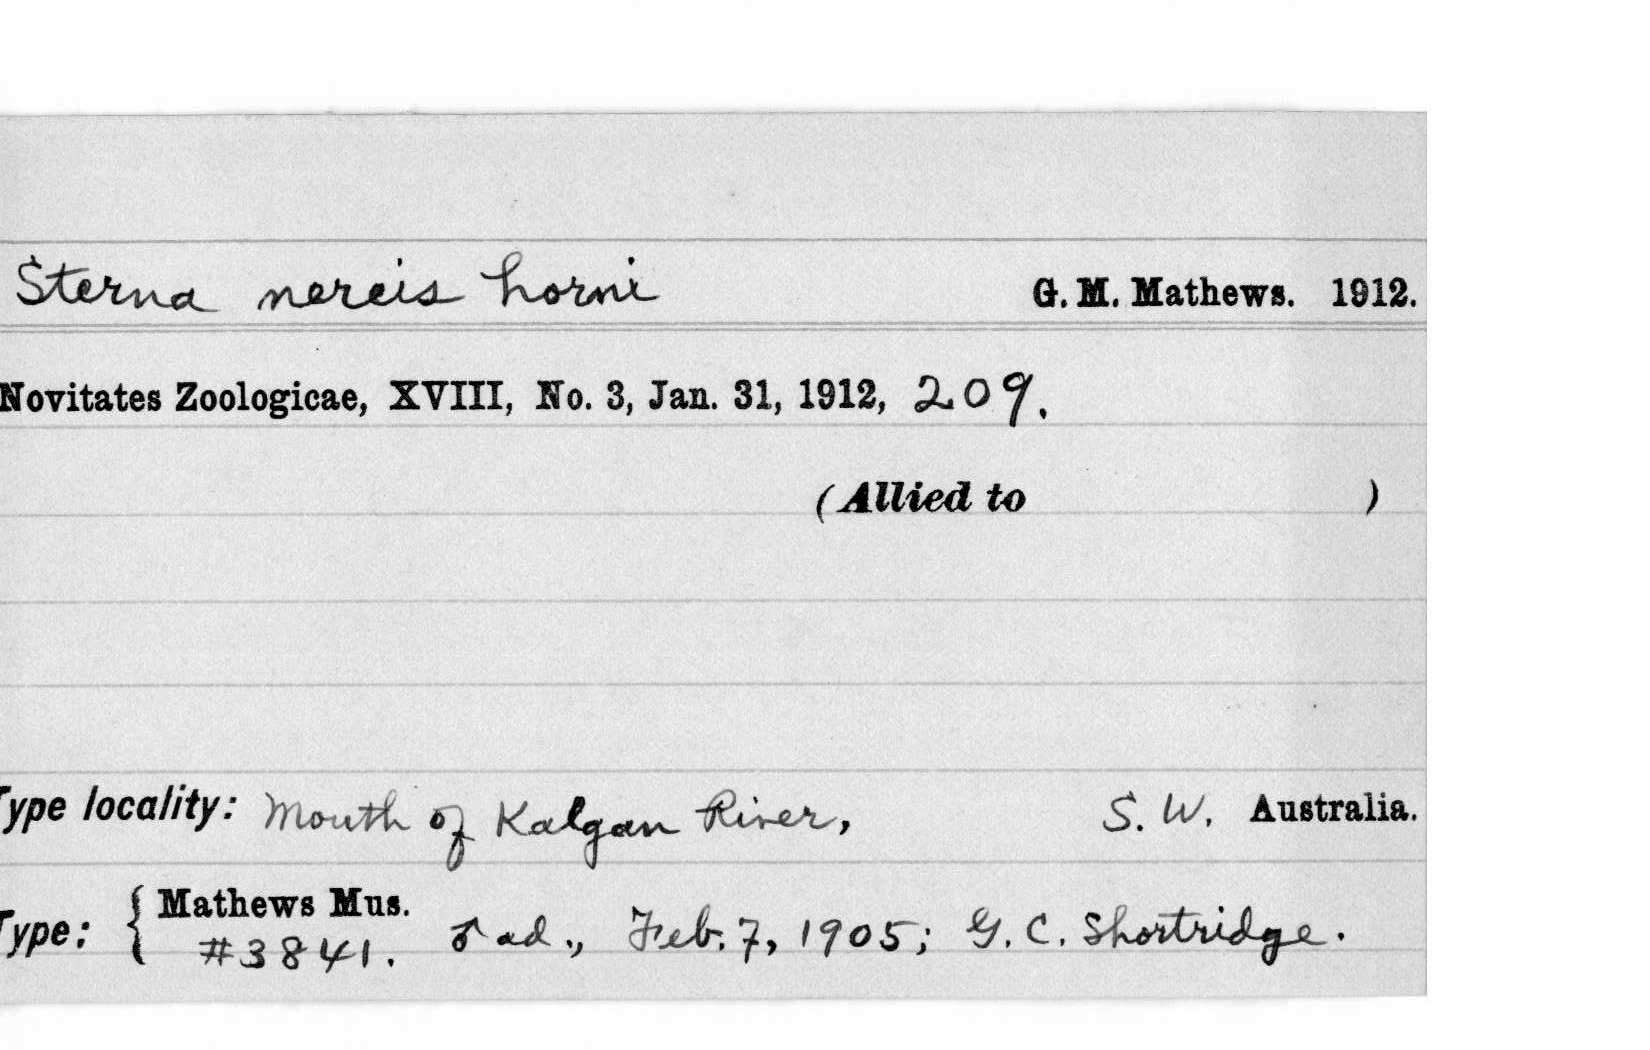 Sterna nereis horni G. M. Mathews. 1912.
Novitates Zoologicae, XVIII, No. 3, Jan. 31, 1912, 209.
(Allied to )
Type locality: Mouth of Kalgan River, S. W. Australia.
Type: { Mathews Mus.
#3841. ♂ ad., Feb. 7, 1905; G. C. Shortridge.